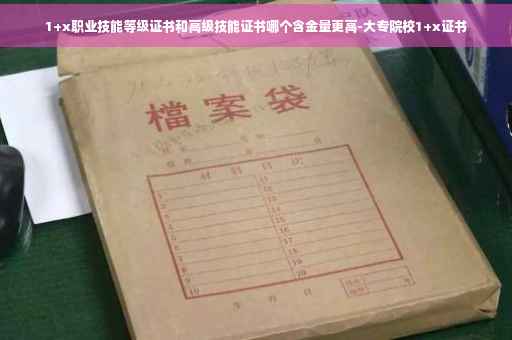 1+x职业技能等级证书和高级技能证书哪个含金量更高-大专院校1+x证书
檔案袋
材料目次
1 11
2 12
3 13
4 14
5 15
6 16
7 17
8 18
9 19
10 20
年 月 日